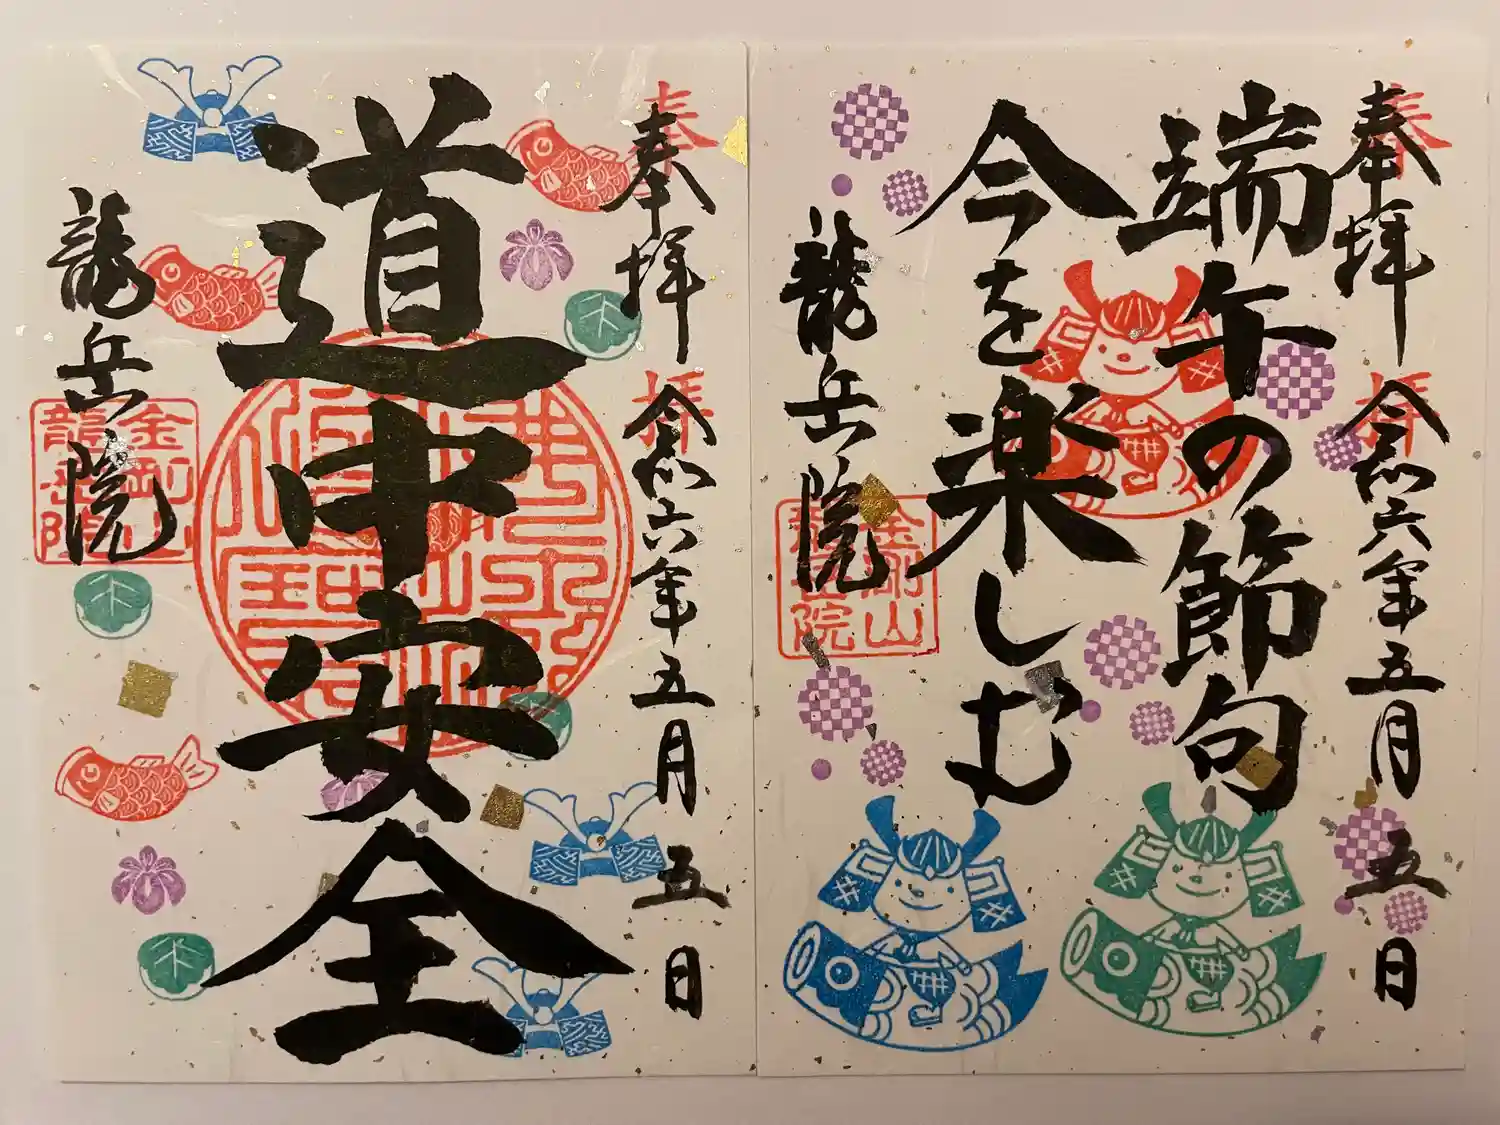 奉拝
令和六年五月五日
端午の節句
今を楽しむ
龍岳院
金剛山
龍岳院
奉拝
奉拝
令和六年五月五日
道中安全
龍岳院
金剛山
龍岳院
奉拝